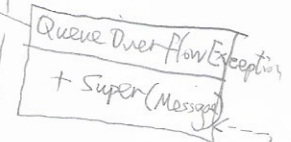 QueueOverflowException
+ Super(Message)